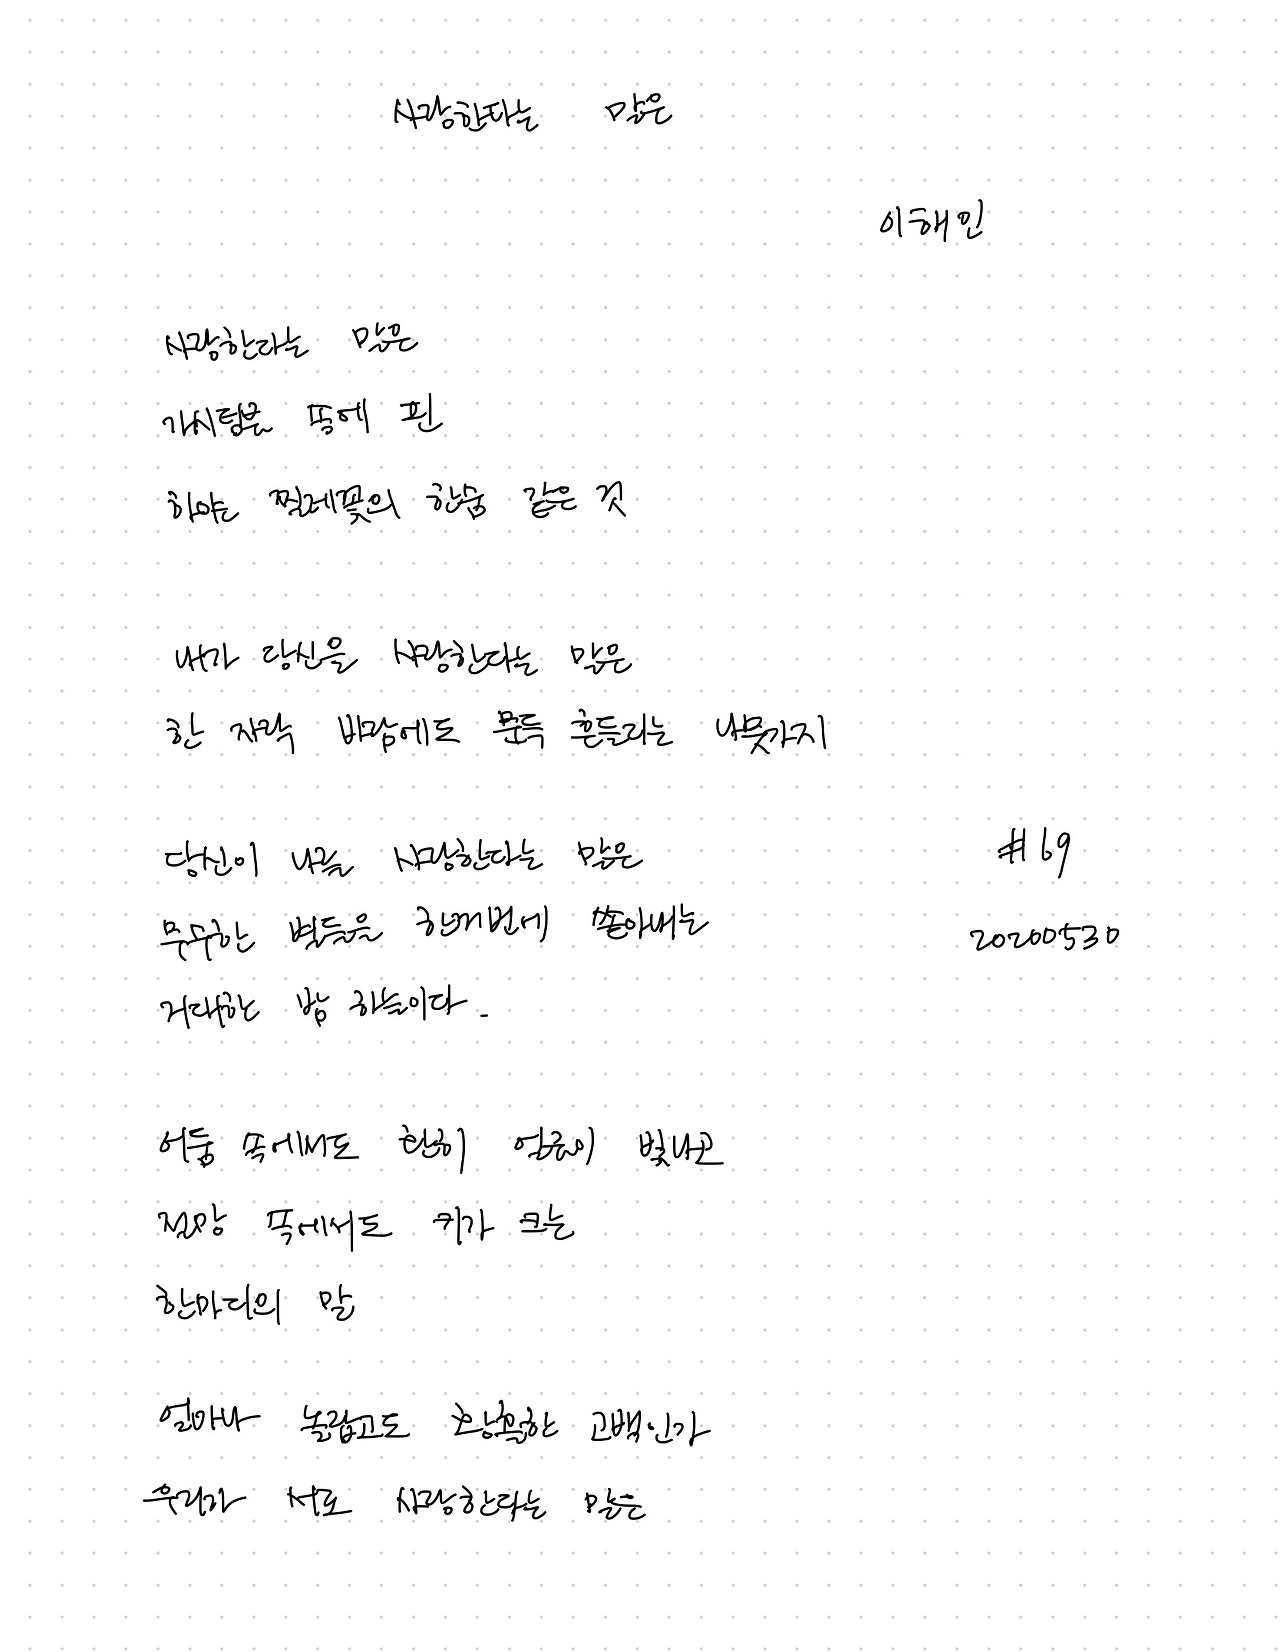 사랑한다는 말은
이해인
사랑한다는 말은
가시덤불 속에 핀
하얀 찔레꽃의 한숨 같은 것
내가 당신을 사랑한다는 말은
한 자락 바람에도 문득 흔들리는 나뭇가지
당신이 나를 사랑한다는 말은
무수한 별들을 한꺼번에 쏟아내는
거대한 밤 하늘이다.
#69
20200530
어둠 속에서도 환히 얼굴이 빛나고
절망 속에서도 키가 크는
한마디의 말
얼마나 놀랍고도 황홀한 고백인가
우리가 서로 사랑한다는 말은